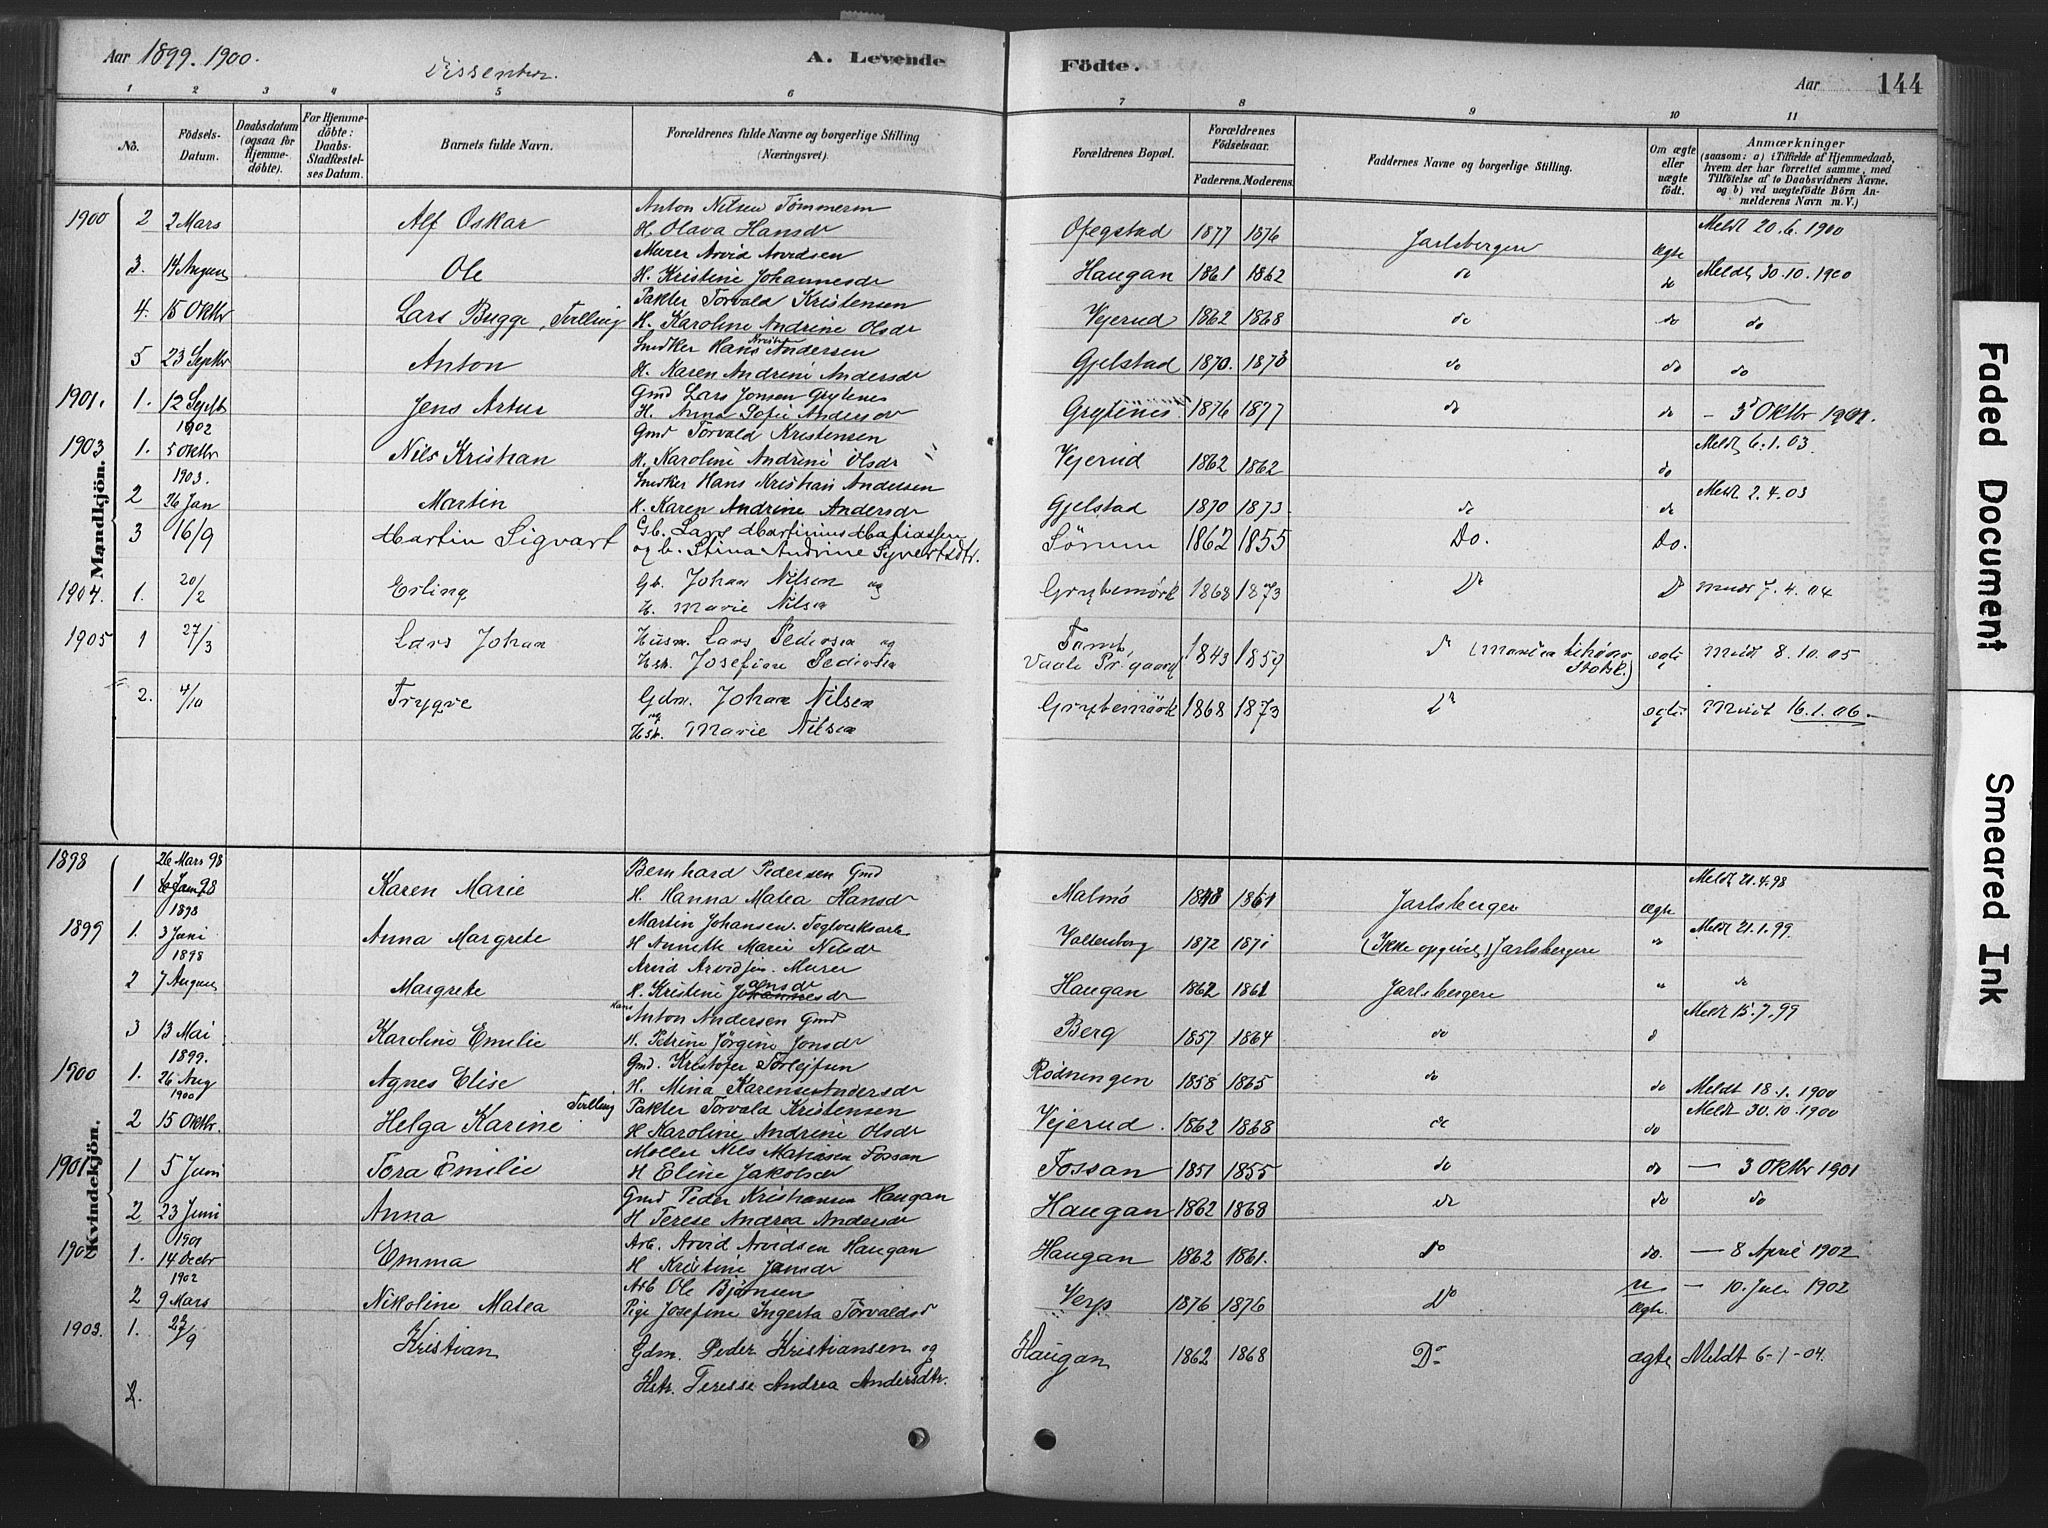 Aar 1899. 1900.
Dissenter.
A. Levende
Födte.
Aar
144
1 2 3 4 5 6 7 8 9 10 11
No.
Födsels-Datum.
Daabsdatum (ogsaa for Hjemmedöbte).
For Hjemmedöbte: Daabs-Stadfæstelses Datum.
Barnets fulde Navn.
Forældrenes fulde Navne og borgerlige Stilling (Næringsvei).
Forældrenes Bopæl.
Forældrenes Födselsaar.
Faderens. Moderens.
Faddernes Navne og borgerlige Stilling.
Om ægte eller uægte födt.
Anmærkninger (saasom: a) i Tilfælde af Hjemmedaab, hvem der har forrettet samme, med Tilföielse af to Daabsvidners Navne. og b) ved uægtefödte Börn Anmelderens Navn m. V.)
Mandkjön.
1900 2 2 Mars Alf Oskar Anton Nilsen Tömmerm Ofegstad 1877 1876 Jarlsbergere Ægte Meldt 20.6.1900
H. Olava Hansdr
3. 14 August Ole Murer Arvid Arvidsen Haugan 1861 1862 do do Meldt 30.10.1900
H. Kristine Johannesdr
4. 15 Oktbr Lars Bugge, Tvilling Pakter Torvald Kristensen Vejerud 1862 1868 do do do
H. Karoline Andrine Olsdr
5 23 Septbr Anton Snedker Hans Kristian Andersen Gjelstad 1870. 1873 do do do
H. Karen Andrine Andersdr
1901. 1. 12 Septb Jens Artur Gmd Lars Jonsen Grytenes Grytines 1876 1877 do do — 3 Oktbr 1901.
H. Anna Sofie Andersdr
1902
1903 1. 5 Oktbr Nils Kristian Gmd Torvald Kristensen Vejerud 1862 1862 do Meldt 6.1.03.
H. Karoline Andrine Olsdr
1903.
2 26 Jan Martin Snedker Hans Kristian Andersen Gjelstad 1870 1873. do do Meldt 2.4.03
H. Karen Andrine Andersdr
3 16/9 Martin Sigvart Gb. Lars Martinius Mafiassen Sörum 1862 1855 Do. Do.
og h. Stina Andrine Syvertsdtr.
1904. 1. 20/2 Erling Gb. Johan Nilsen og Grytemörk 1868 1873 Do Do Meldt 7.4.04
H. Marie Nilsen
1905 1 27/3 Lars Johan Husm. Lars Pedersen og Tomb, Vaale Pr.gaard 1843 1859 do ægte Meldt 8.10.05
Hstr. Josefine Pedersen
2. 4/10 Trygve Gdm. Johan Nilsen Grytemörk 1868 1873 Do ægte Meldt 16.1.06.
og Hstr. Marie Nilsen
Kvindekjön.
1898 26 Mars 98
1 6 Jan 98 Karen Marie Bernhard Pedersen Gmd Malmö 1848 1861 Jarlsberger Ægte Meldt 21.4.98
H. Hanna Matea Hansdr
1898
1899 1. 3 Juni Anna Margrete Martin Johansen. Teglverksarb Valdenborg 1872 1871 (Ikke opgivet) Jarlsbergere " Meldt 21.1.99.
H Annette Marie Nilsdr
1898
2 7 August Margrete Arvid Arvidsen. Murer Haugan 1862 1861 Jarlsbergere " do
H. Kristine Johannesdr
3 13 Mai Karoline Emilie Anton Andersen Gmd Berg 1857 1864 do d Meldt 15.7.99
H. Petrine Jörgine Jonsdr
1899.
1900 1. 26 Aug Agnes Elise Gmd. Kristofer Torleifsen Rödningen 1858 1865 do do Meldt 18.1.1900
H. Mina Karense Andersdr
1900
2 15 Oktbr. Helga Karine Tvilling Pakter Torvald Kristensen Vejerud. 1862 1868 do do Meldt 30.10.1900
H Karoline Andrine Olsdr
1901 1 5 Juni Tora Emilie Möller Nils Matiasen Fossan Fossan 1851 1855 do do — 3 Oktbr 1901
H Eline Jakobsdr
2 23 Juni Anna Gmd Peder Kristiansen Haugan Haugan 1862 1868 do do do
H Terese Andrea Andersdr
1901
1902 1. 14 Decbr Emma Arb. Arvid Arvidsen Haugan Haugan 1862 1861. Do do. — 8 April 1902
H Kristine Jansdr
1902
2 9 Mars Nikoline Matea Arb Ole Björnsen Verp 1876 1876 Do u Ægte. — 10. Juli 1902
Pige Josefine Ingerta Torvaldsd
1903. 1. 27/9 Kristian Gdm. Peder Kristiansen og Haugan 1862 1868 Do ægte Meldt 6-1-04.
Hstr. Teresse Andrea Andersdtr.
2.
Faded Document
Smeared Ink